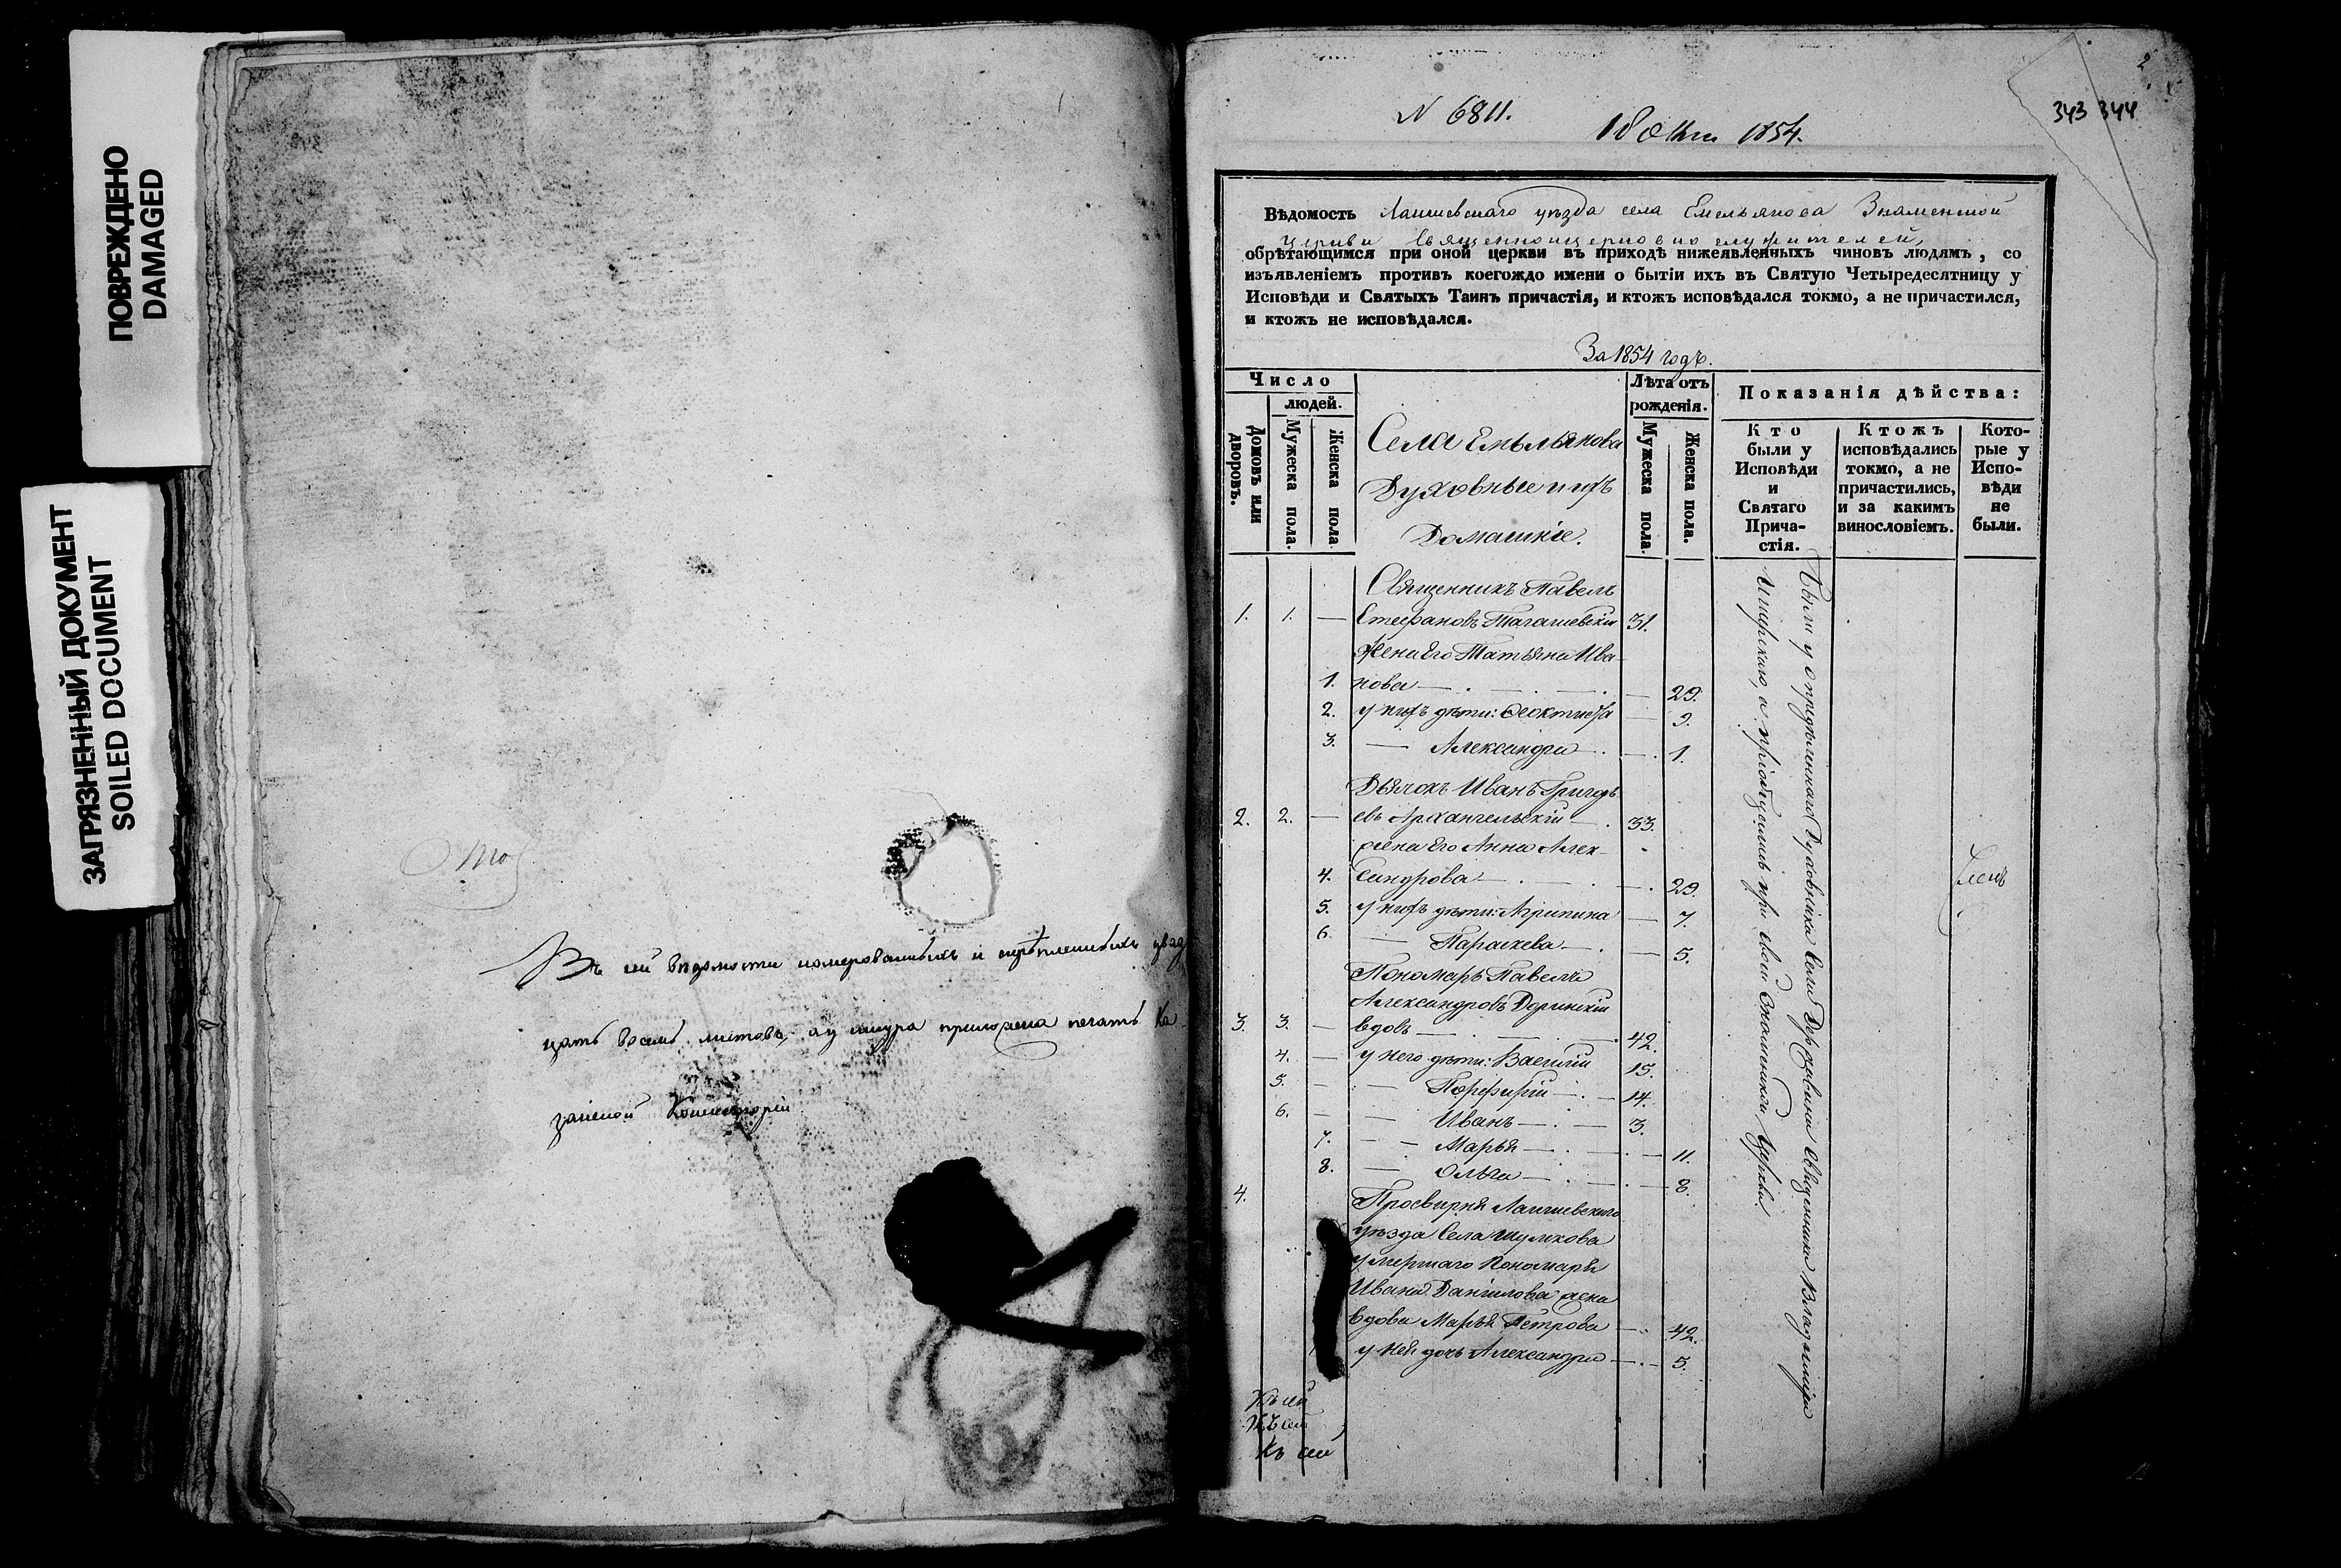 ПОВРЕЖДЕНО
DAMAGED
ЗАГРЯЗНЕННЫЙ ДОКУМЕНТ
SOILED DOCUMENT
Въ сей ведомости номерованныхъ и скрѣпленныхъ двад
цать восемь листовъ, а у шнура приложена печать Ка
занской Консисторіи
2
343 344
N 6811.
18 Окт 1854.
Вѣдомость Лаишевскаго уѣзда села Емельянова Знаменской
церкви Священноцерковнослужителей,
обрѣтающимся при оной церкви въ приходѣ нижеявленныхъ чиновъ людямъ, со
изъявленіемъ противъ коегождо имени о бытіи ихъ въ Святую Четыредесятницу у
Исповѣди и Святыхъ Таинъ причастія, и ктожъ исповѣдался токмо, а не причастился,
и ктожъ не исповѣдался.
За 1854 годъ.
Число
людей.
Домовъ или дворовъ.
Мужеска пола.
Женска пола
Села Емельянова
Духовные и ихъ
Домашніе.
Лѣта отъ
рожденія.
Мужеска пола.
Женска пола.
Показанія дѣйства:
Кто
были у
Исповѣди
и
Святаго
Прича-
стія.
Ктожъ
исповѣдались
токмо, а не
причастились,
и за какимъ
винословіемъ.
Кото-
рые у
Испо-
вѣди
не
были.
Священникъ Павелъ
1. 1. — Стефановъ 31.
Жена Его Татьяна Ива
1. нова — 29.
2. у нихъ дѣти: Феоктиста — 9.
3. — Александра — 1.
Дьячокъ Иванъ Григорь
2. 2. — евъ Архангельскій — 33.
жена Его Анна Алек
4. сандрова — 29.
5. у нихъ дѣти: Агрипина — 7.
6. — Параскева — 5.
Пономарь Павелъ
Александровъ
3. 3. — вдовъ — 42.
4. — у него дѣти: Василій 15.
5. — — Порфирій — 14.
6. — — Иванъ — 3.
7. — Марья — 11.
8. — Ольга — 8.
4. Просвирня Лаишевскаго
уѣзда Села Шумкова
умершаго Пономаря
Ивана Данилова жена
вдова Марья Петрова — 42.
у ней дочь Александра — 5.
Къ сей
Къ сей
Къ сей
Были у опредѣленнаго Духовника Села Державина Священника Владимира
и пріобщались при своей Знаменской Церкви